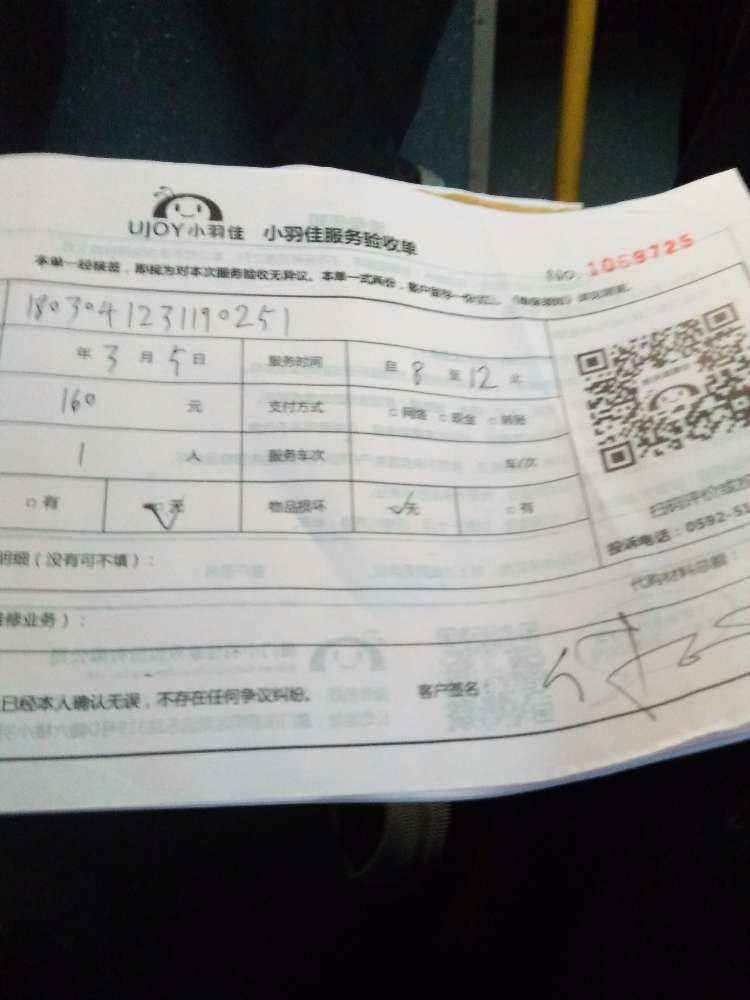 UJOY小羽佳 小羽佳服务验收单
No. 1069725
本单一经签签，即视为对本次服务验收无异议。本单一式两份，客户留存一份
1803041231190251
年 3 月 5 日 服务时间 自 8 至 12 止
160 元 支付方式 □ 网络 □ 现金 □ 转账
1 人 服务车次 车/次
□ 有 □ 无 物品损坏 □ 无 □ 有
扫码评价或投
投诉电话：0592-51
明细（没有可不填）：
代购材料总额：
维修业务）：
已经本人确认无误，不存在任何争议纠纷。 客户签名：